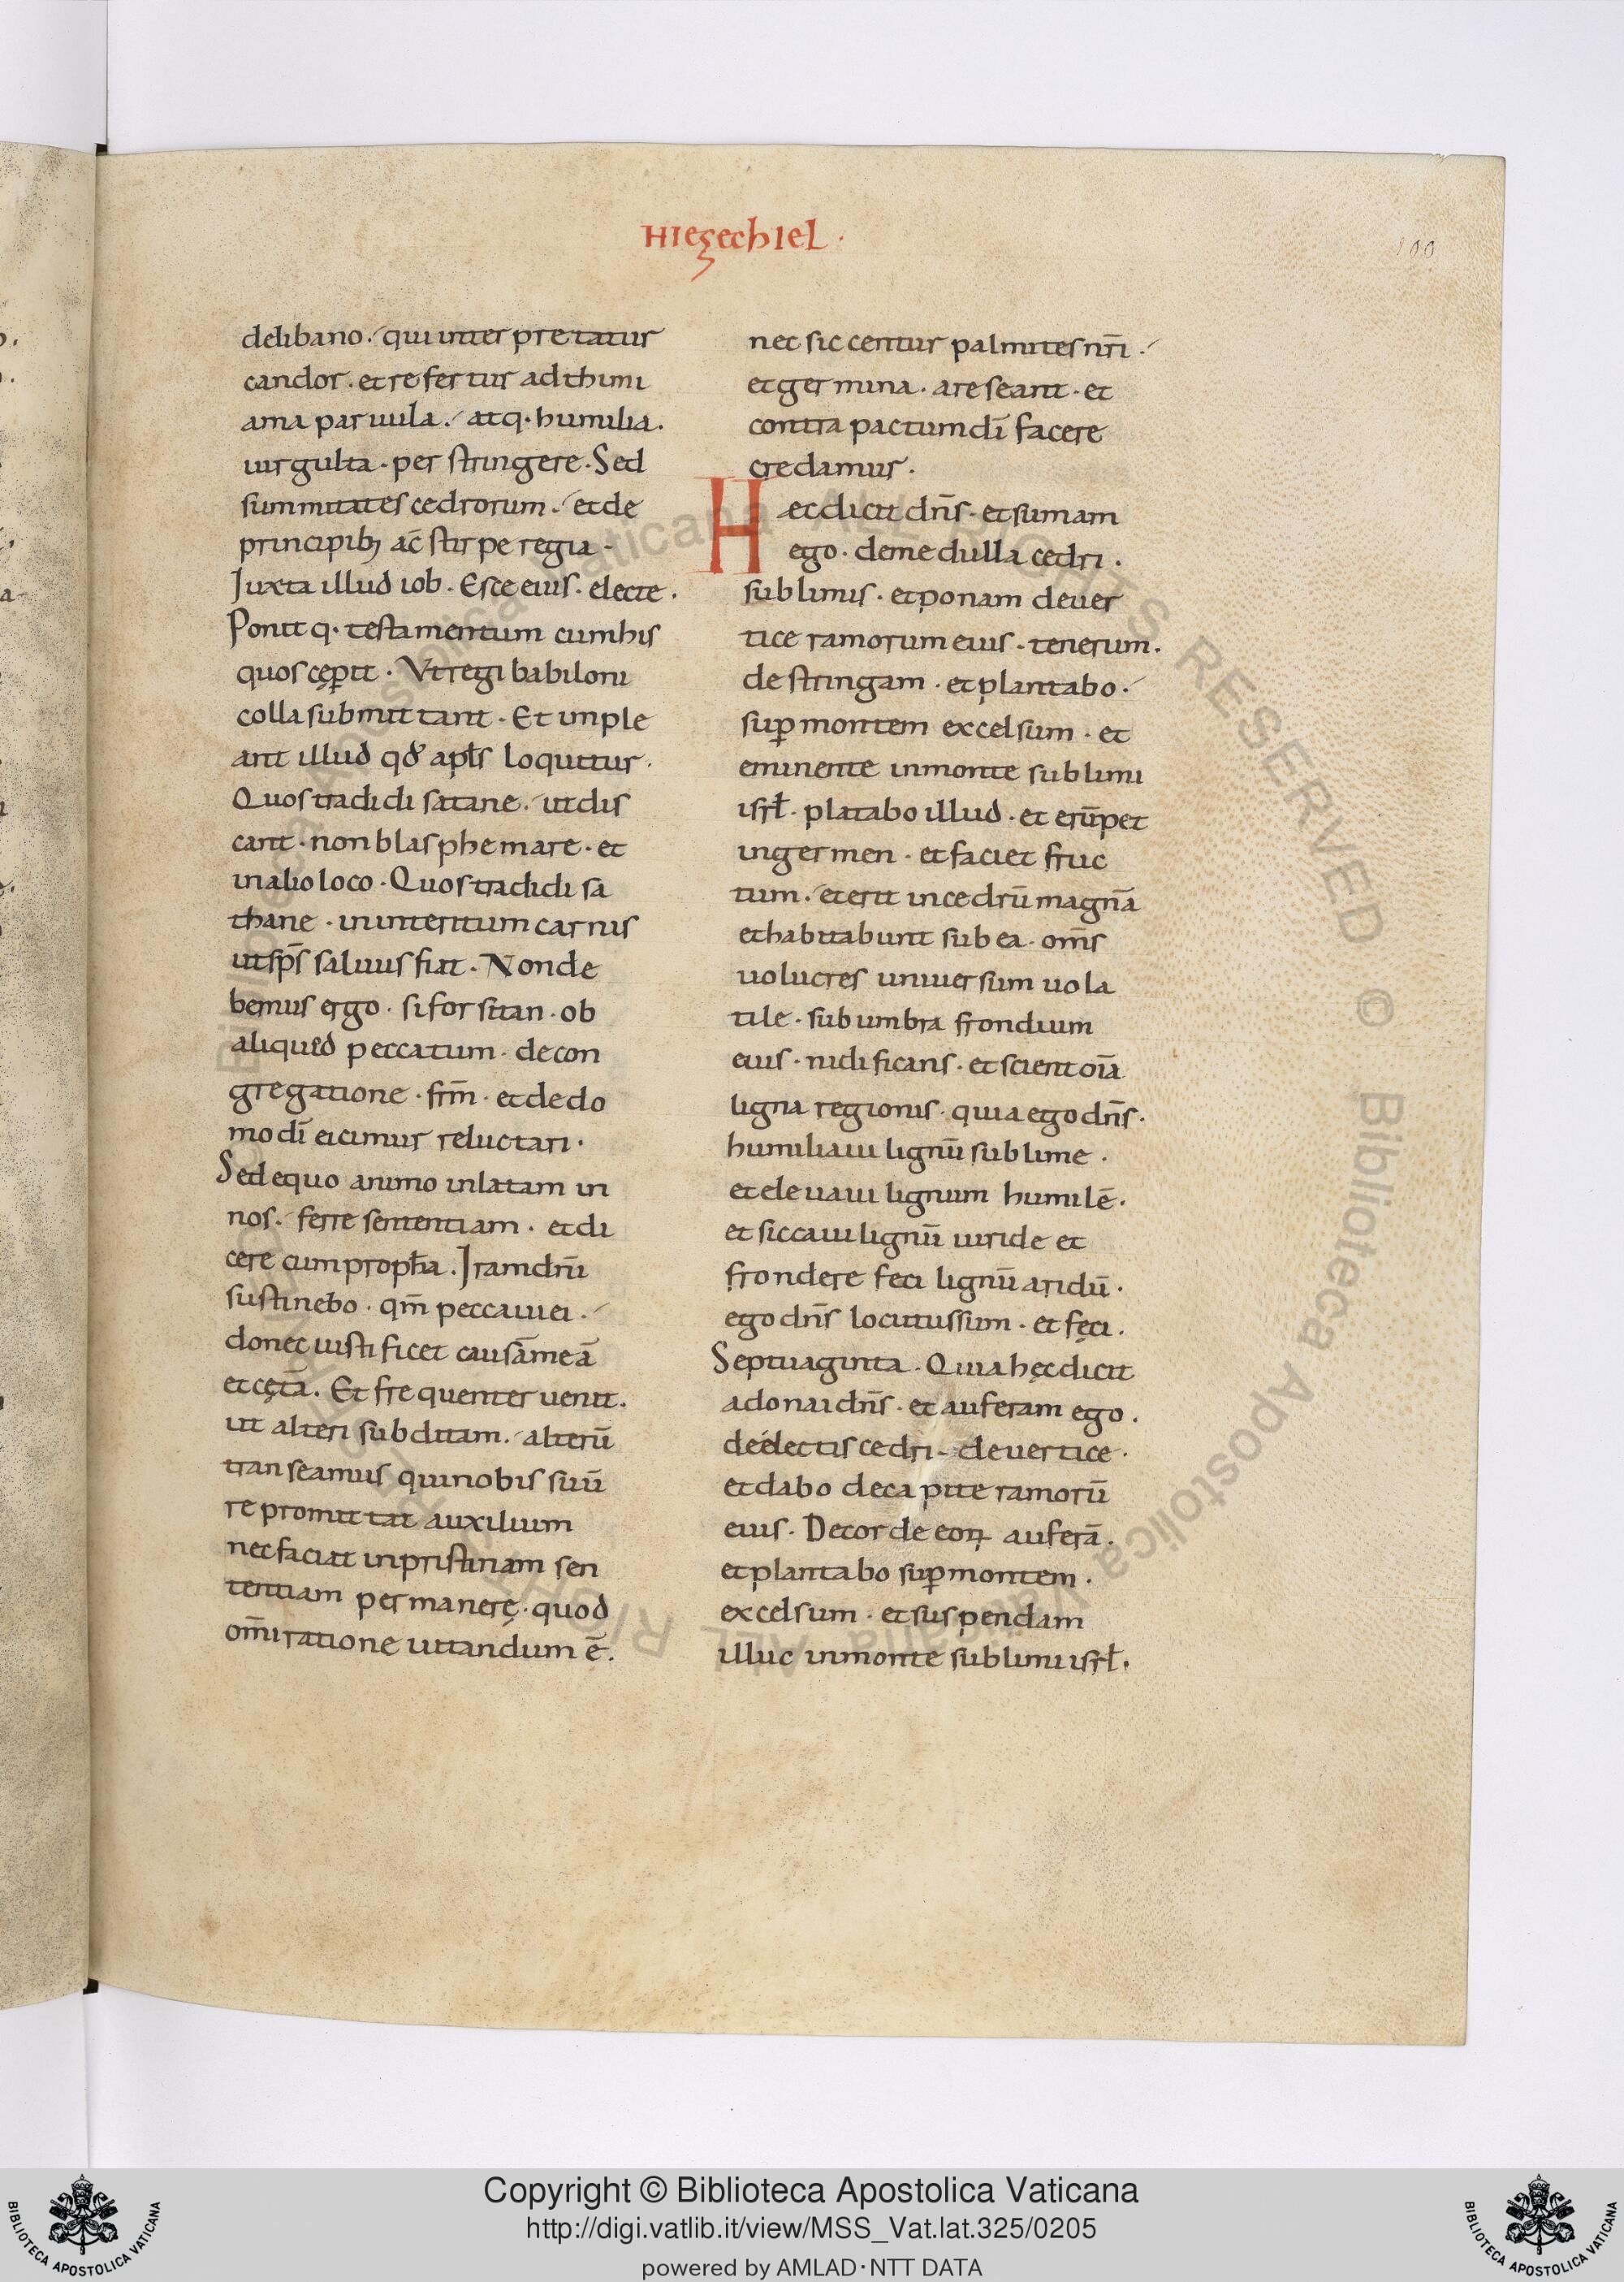 HIEZECHIEL ·
100
delibano ·́ qui interpretatur
candor · et refertur ad thimi
ama paruula ·́ atq· humilia ·
uirgulta · per stringere · Sed
summitates cedrorum ·́ et de
principib; ac̄ stirpe regia ·
Juxta illud iob · Esce eius · electe ·
Ponit q· testamentum cum his
quos cęꝑit · Vt regi babiloni
colla submittant · Et imple
ant illud qđ apłs loquitur ·
Quos tradidi satane ·́ ut dis
cant · non blasphemare · et
in alio loco · Quos tradidi sa
thane · in interitum carnis
ut sp̄s saluus fiat · Non de
bemus ergo · si forsitan · ob
aliquod peccatum · de con
gregatione · frm̄ · et de do
mo dī eicimur reluctari ·
Sed equo animo inlatam in
nos ·́ ferre sententiam · et di
cere cum propħa · Jram dnī
sustinebo · qm̄ peccaui ei ·́
donec iustificet causā meā
et cętā · Et frequenter uenit ·
ut alteri subditam ·́ alterū
transeamus qui nobis suū
repromittat auxilium
nec faciat in pristinam sen
tentiam permanerę · quod
om̄i ratione uitandum ē ·
nec siccentur palmites nrī ·́
et germina · areseant · et
contra pactum dī facere
credamus ·
Hæc dicit dn̄s · et sumam
ego · de medulla cedri ·
sublimis · et ponam de uer
tice ramorum eius · tenerum ·
de stringam · et plantabo ·́
suꝑ montem excelsum · et
eminente in monte sublimi
isrł · platabo illud · et erūpet
in germen · et faciet fruc
tum ·́ et erit in cedrū magnā
et habitabunt sub ea · om̄s
uolucres uniuersum uola
tile · sub umbra frondium
eius · nidificans · et scient oīa
ligna regionis · quia ego dn̄s ·
humiliaui lignū sublime ·
et eleuaui lignum humilē ·
et siccaui lignū uiride et
frondere feci lignū aridū ·
ego dn̄s locutus sum · et fęci ·
Septuaginta · Quia hęc dicit
adonai dn̄s · et auferam ego ·
de electis cedri · de uertice ·
et dabo de capite ramorū
eius · De corde eoꝝ auferā ·
et plantabo suꝑ montem ·
excelsum · et suspendam
illuc in monte sublimi isrł ·
Copyright © Biblioteca Apostolica Vaticana
http://digi.vatlib.it/view/MSS_Vat.lat.325/0205
powered by AMLAD·NTT DATA
BIBLIOTECA APOSTOLICA VATICANA
BIBLIOTECA APOSTOLICA VATICANA
Biblioteca Apostolica Vaticana ALL RIGHTS RESERVED ©